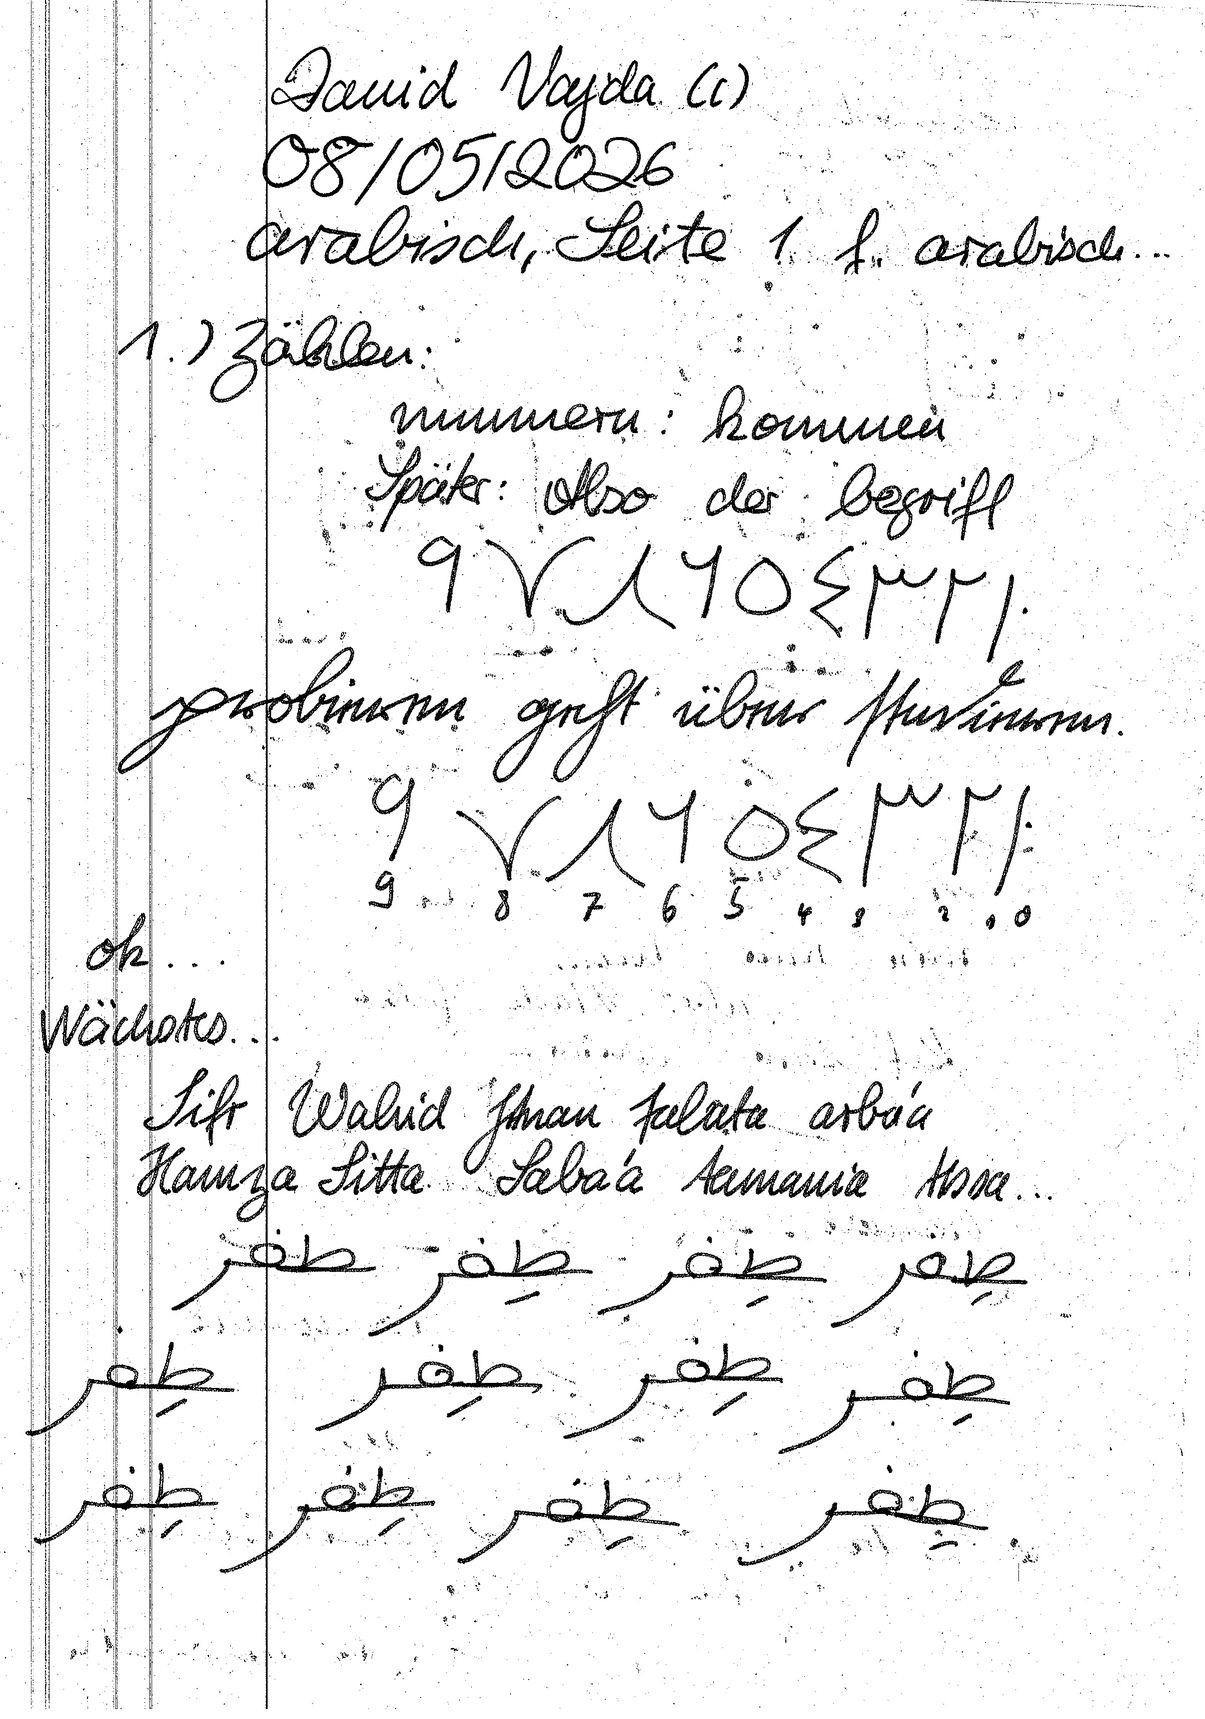 David Vajda (c)
08/05/2026
arabisch, Seite 1 f. arabisch...
1.) Zählen:
nummern: kommen
Später: Also der begriff
٩٧٨٦٥٤٣٢١٠
probieren geht über studieren.
٩٧٨٦٥٤٣٢١٠
9 8 7 6 5 4 3 2 1 0
ok...
Nächstes...
Sifr Wahid Ithnan talata arba'a
Hamza Sitta Saba'a tamania tissa...
طفر طِفر طِفر طِفر
طِفر طِفر طِفر طِفر
طِفر طِفر طِفر طِفر